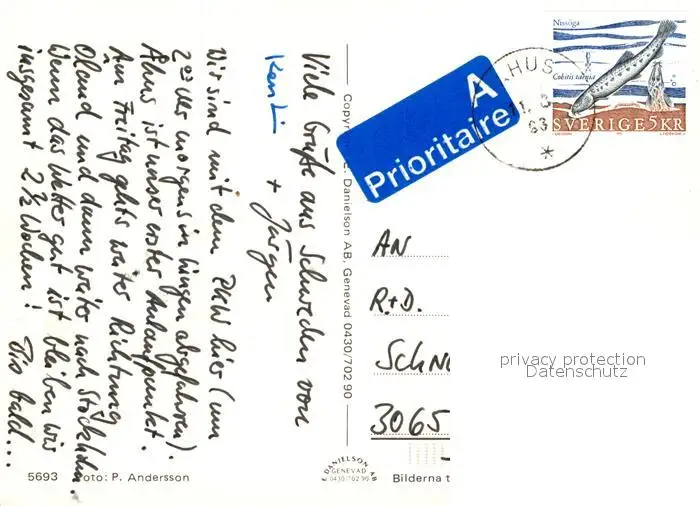 Viele Grüße aus Schweden von
Kerstin + Jürgen
Wir sind mit dem PKW hier (um
2°° Uhr morgens in Lingen abgefahren).
Åhus ist unser erster Anlaufpunkt.
Am Freitag gehts weiter Richtung
Öland und dann weiter nach Stockholm.
Wenn das Wetter gut ist bleiben wir
insgesamt 2½ Wochen! Bis bald...
5693 Foto: P. Andersson
Danielson AB, Genevad 0430/702 90
DANIELSON AB
GENEVAD
0430/702 90
Bilderna t
A
Prioritaire
Nissöga
Cobitis taenia
SVERIGE 5KR
HUS
AN
R+D.
3065
privacy protection
Datenschutz